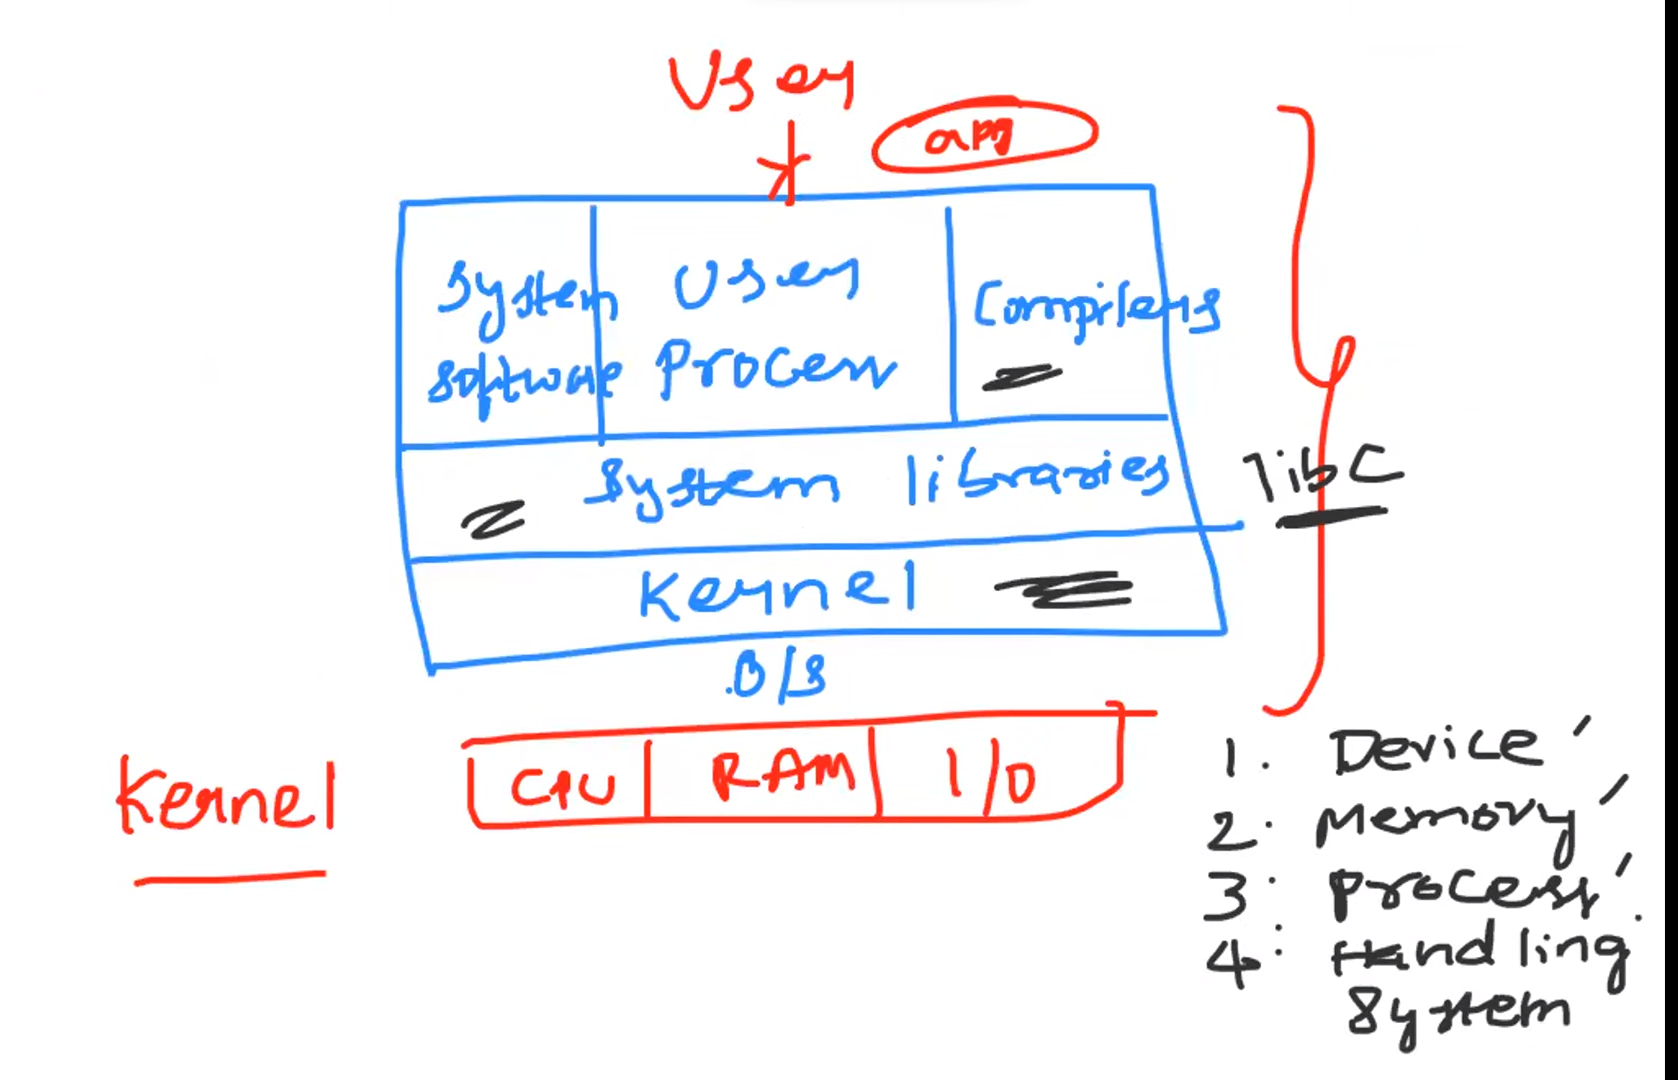 User
app
System
Software
User
Process
Compilers
System libraries
libC
Kernel
O/S
CPU
RAM
I/O
Kernel
1. Device
2. Memory
3. Process
4. Handling
System